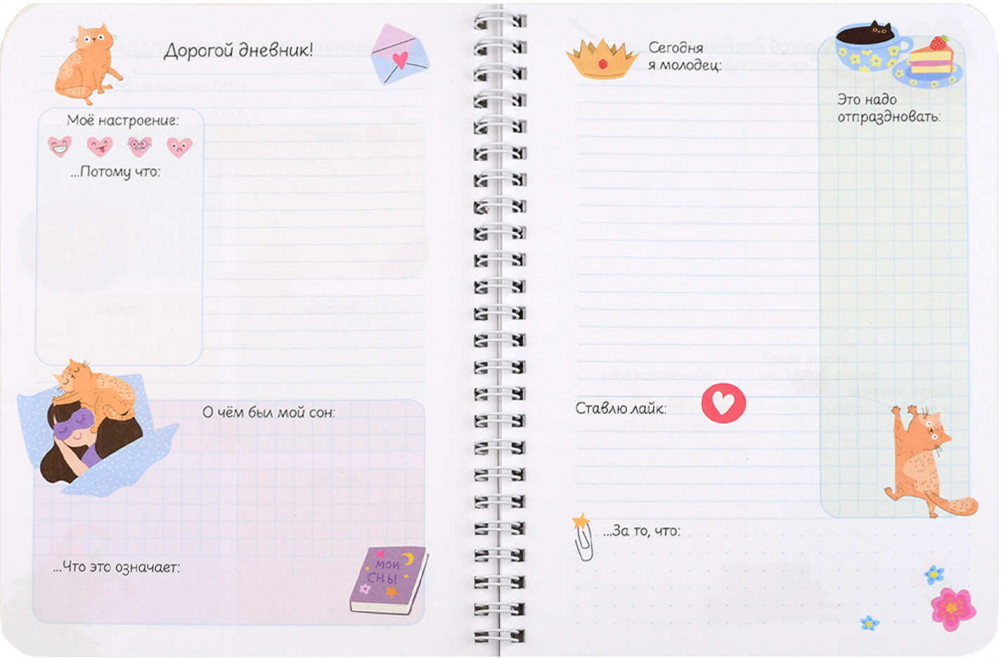 Дорогой дневник!
Моё настроение:
...Потому что:
О чём был мой сон:
...Что это означает:
МОИ
СНЫ
Сегодня
я молодец:
Это надо
отпраздновать:
Ставлю лайк:
...За то, что: